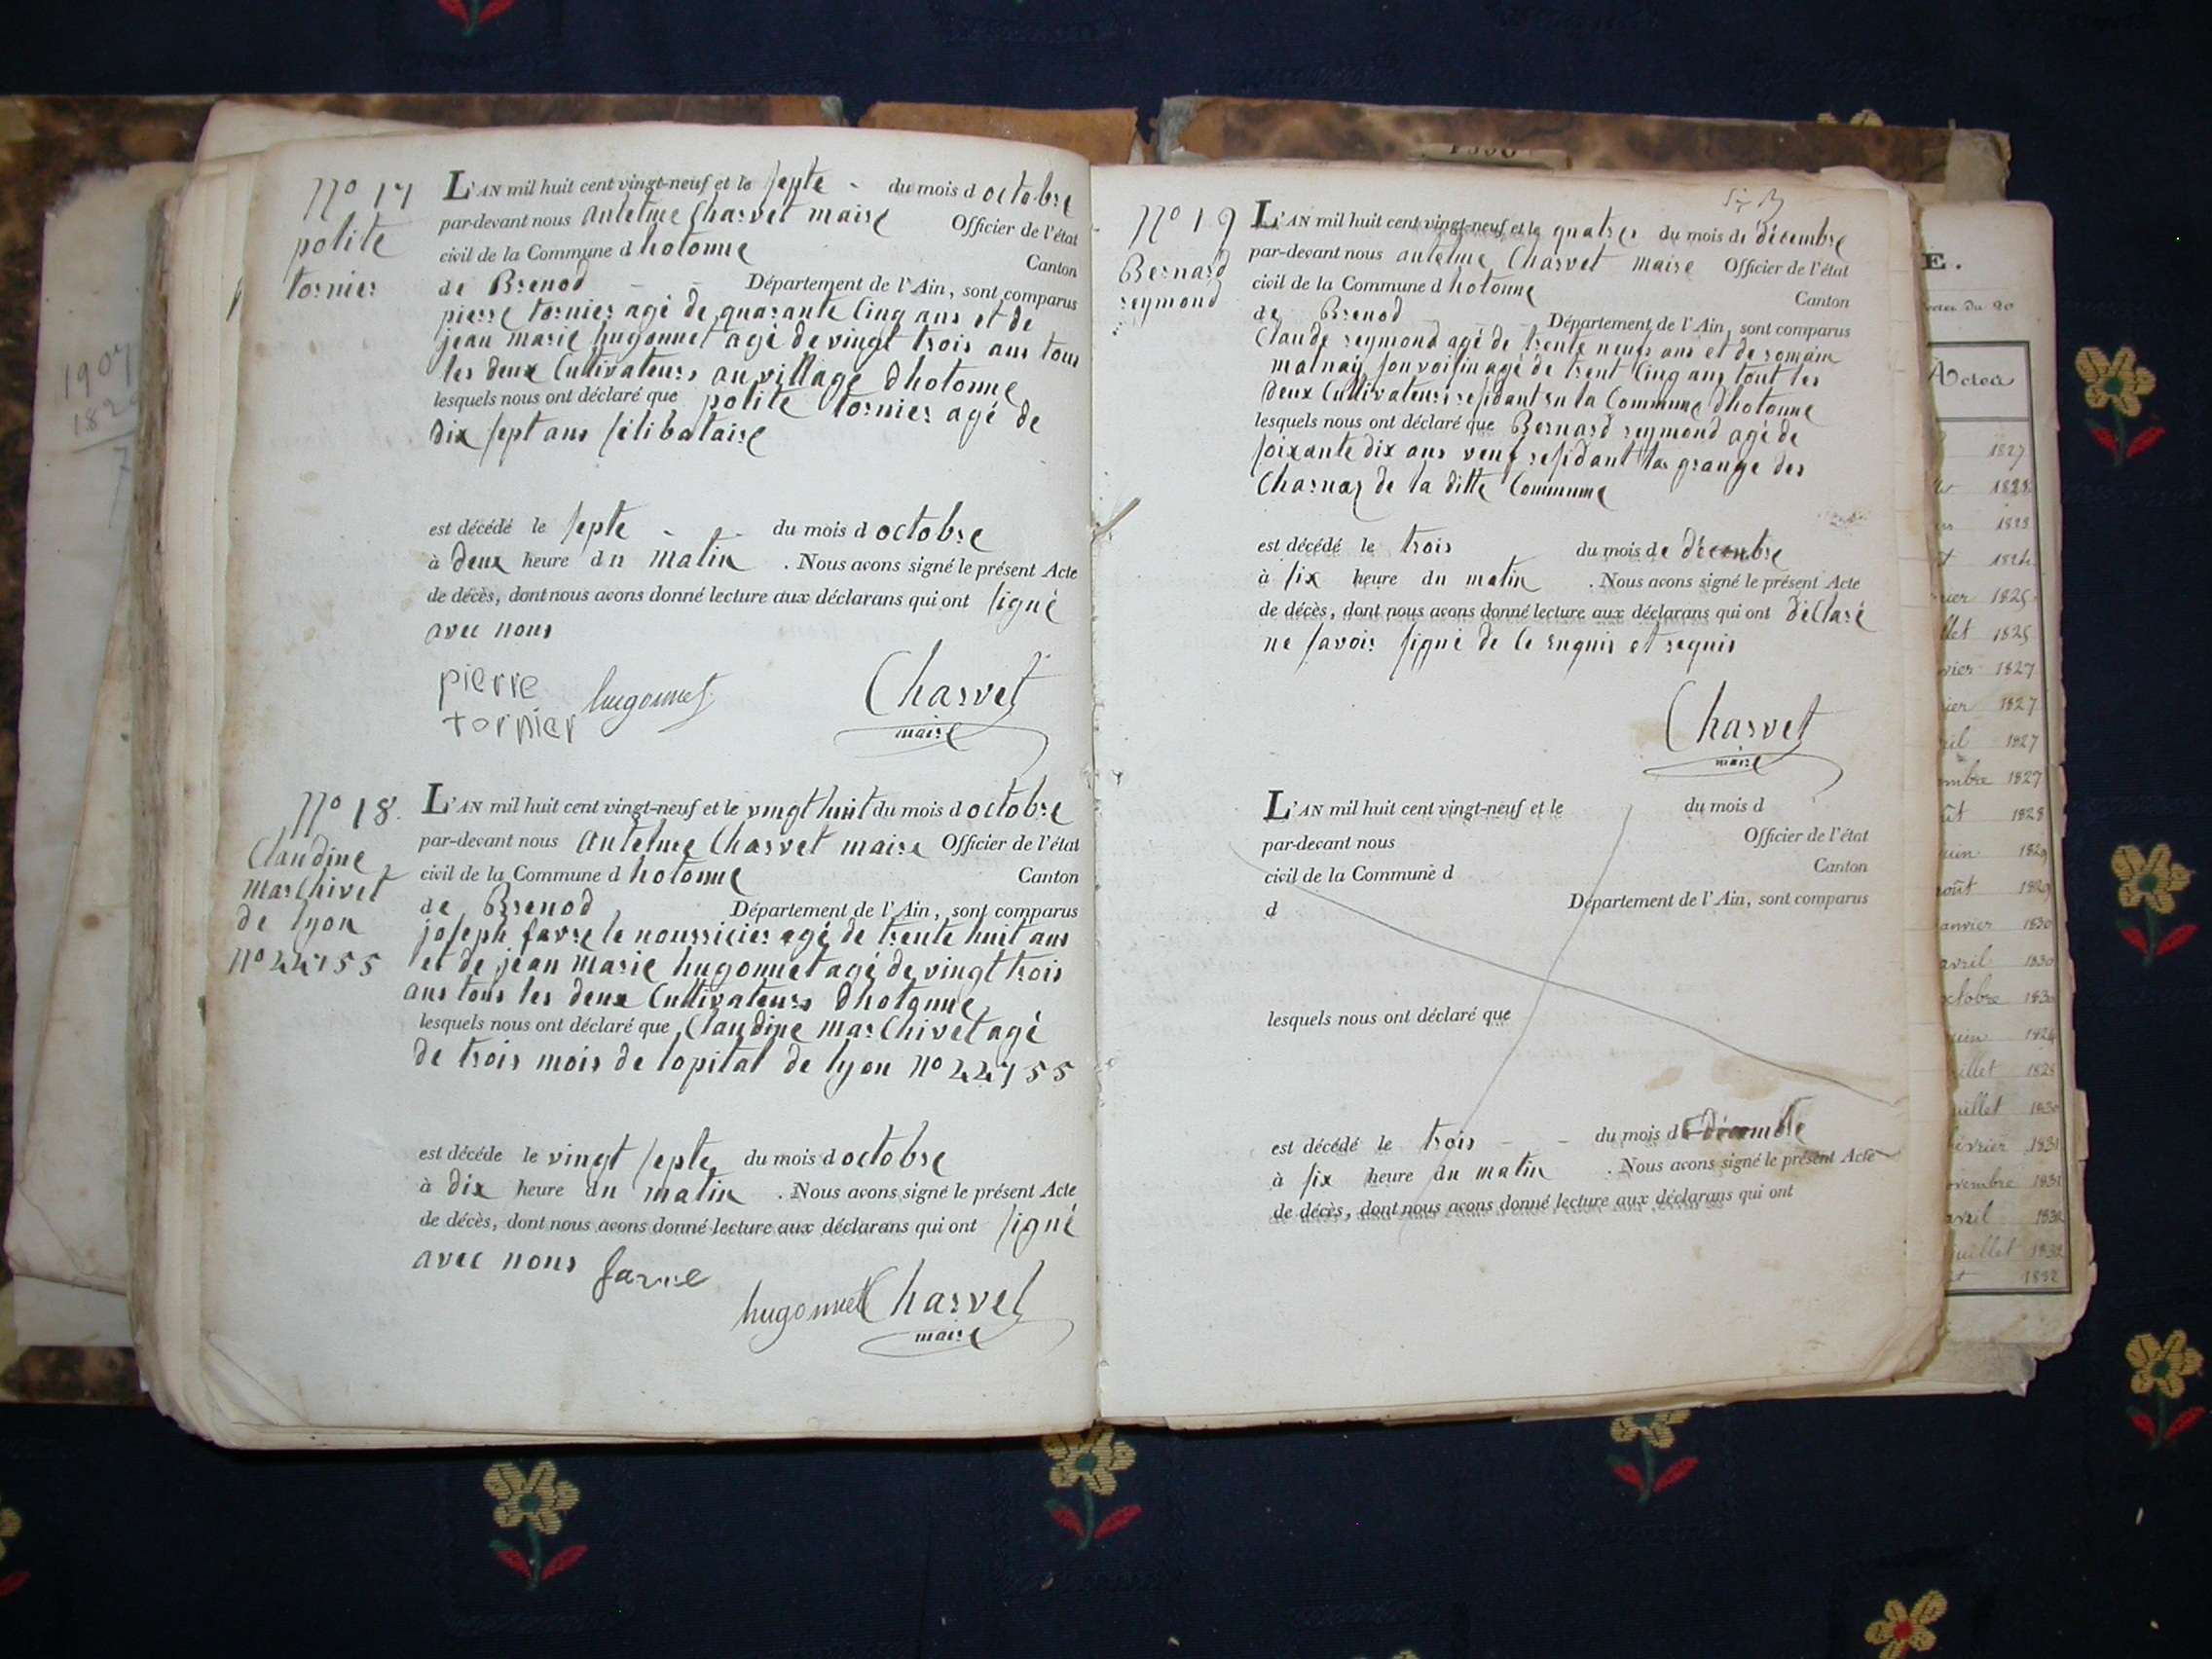 No 17
polite
tornier
L'AN mil huit cent vingt-neuf et le septe - du mois d octobre
par-devant nous antelme Charvet maire Officier de l'état
civil de la Commune d hotonne Canton
de Brenod - - Département de l'Ain, sont comparus
pierre tornier agé de quarante Cinq ans et de
jean marie hugonnet agé de vingt trois ans tous
les deux Cultivateurs au village dhotonne
lesquels nous ont déclaré que polite tornier agé de
dix sept ans sélibataire
est décédé le septe - - du mois d octobre
à deux heure du matin . Nous avons signé le présent Acte
de décès, dont nous avons donné lecture aux déclarans qui ont signé
avec nous
pierre
tornier
hugonnet
Charvet
maire
No 18.
Claudine
marChivet
de lyon
No 44755
L'AN mil huit cent vingt-neuf et le vingt huit du mois d octobre
par-devant nous antelme Charvet maire Officier de l'état
civil de la Commune d hotonne Canton
de Brenod Département de l'Ain, sont comparus
joseph favre le nourricier agé de trente huit ans
et de jean marie hugonnet agé de vingt trois
ans tous les deux Cultivateurs dhotonne
lesquels nous ont déclaré que Claudine marChivet agé
de trois mois de lopital de lyon No 44755
est décédé le vingt septe du mois d octobre
à dix heure du matin . Nous avons signé le présent Acte
de décès, dont nous avons donné lecture aux déclarans qui ont signé
avec nous
favre
hugonnet
Charvet
maire
No 19
Bernard
reymond
L'AN mil huit cent vingt-neuf et le quatre du mois de décembre
par-devant nous antelme Charvet maire Officier de l'état
civil de la Commune d hotonne Canton
de Brenod - - Département de l'Ain, sont comparus
Claude reymond agé de trente neufs ans et de romain
matnay son voisin agé de trent Cinq ans tout les
deux Cultivateurs residant en la Commune dhotonne
lesquels nous ont déclaré que Bernard reymond agé de
soixante dix ans veuf residant las grange des
Charnaz de la ditte Commune
est décédé le trois du mois de décembre
à six heure du matin . Nous avons signé le présent Acte
de décès, dont nous avons donné lecture aux déclarans qui ont déclaré
ne savoir signé de ce enquis et requis
Charvet
maire
L'AN mil huit cent vingt-neuf et le du mois d
par-devant nous Officier de l'état
civil de la Commune d Canton
d Département de l'Ain, sont comparus
lesquels nous ont déclaré que
est décédé le trois - - du mois de décembre
à six heure du matin . Nous avons signé le présent Acte
de décès, dont nous avons donné lecture aux déclarans qui ont
E.
Actes
1827
1828
1825
1825
1827
1827
1827
1827
1828
1829
août 1829
janvier 1830
avril 1830
octobre 1830
juin
juillet 1828
juillet 1830
février 1831
novembre 1831
avril 1832
juillet 1832
1832
1907